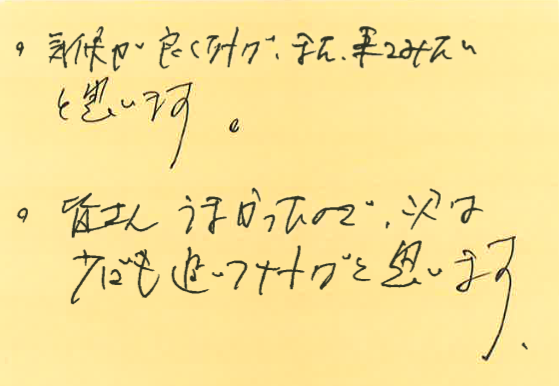 ・気候が良くなれば、また、来てみたい
と思います。
・皆さんうまかったので、次は
少しでも追いつければと思います、